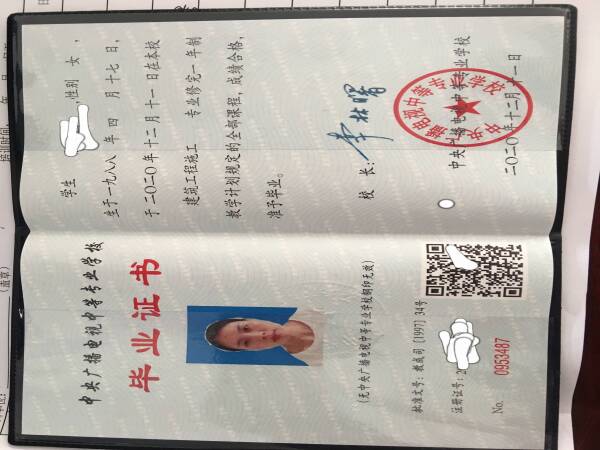 中央广播电视中等专业学校
毕业证书
(无中央广播电视中等专业学校钢印无效)
批准文号:教成司[1997]34号
注册证号:2
No. 0953487
学生 ,性别 女,
生于一九八八年 四 月十七日,
于二〇二〇年十二月十一日在本校
建筑工程施工 专业修完一年制
教学计划规定的全部课程,成绩合格,
准予毕业。
校 长:
中央广播电视中等专业学校
二〇二〇年十二月十一日
中央广播电视中等专业学校
培训时间:
(盖章)